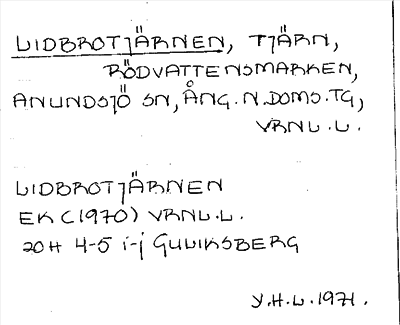 LIDBROTJÄRNEN, TJÄRN,
RÖDVATTENSMARKEN,
ANUNDSJÖ SN, ÅNG. N. DOMS. TG,
VRNL. L.
LIDBROTJÄRNEN
EK (1970) VRNL. L.
20H 4-5 i-j GULIKSBERG
Y. H. L. 1971.